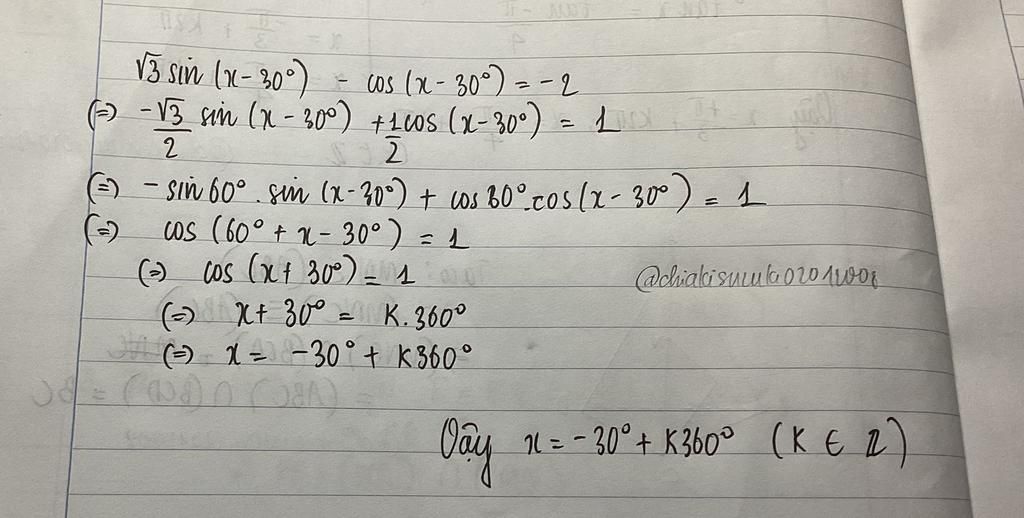 √3 sin (x - 30°) - cos (x - 30°) = -2
(=) -√3/2 sin (x - 30°) + 1/2 cos (x - 30°) = 1
(=) - sin 60° . sin (x - 30°) + cos 60° . cos (x - 30°) = 1
(=) cos (60° + x - 30°) = 1
(=) cos (x + 30°) = 1
(=) x + 30° = K. 360°
(=) x = -30° + K360°
Vậy x = -30° + K360° (K ∈ Z)